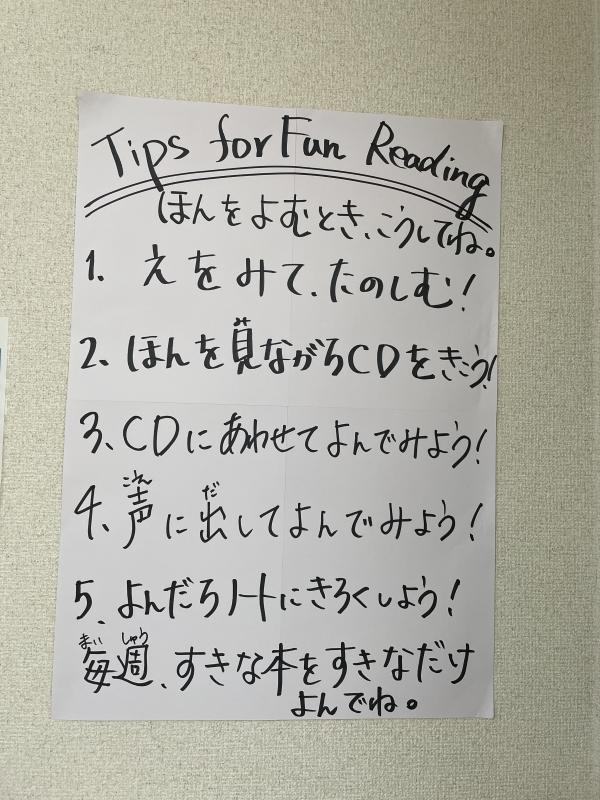 Tips for Fun Reading
ほんをよむとき、こうしてね。
1. えをみて、たのしむ!
2. ほんを見ながらCDをきこう!
3、CDにあわせてよんでみよう!
4、声に出してよんでみよう!
5、よんだらノートにきろくしよう!
毎週、すきな本をすきなだけ
よんでね。